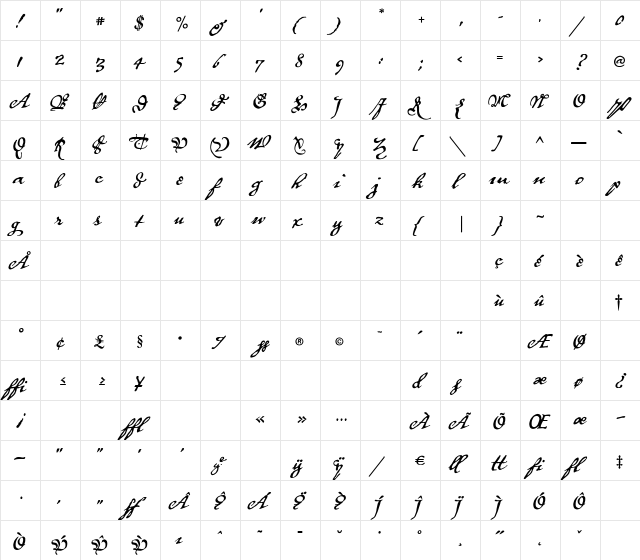 ! " # $ % & ' ( ) * + , - . / 0
1 2 3 4 5 6 7 8 9 : ; < = > ? @
A B C D E F G H I J K L M N O P
Q R S T U V W X Y Z [ \ ] ^ _
a b c d e f g h i j k l m n o p
q r s t u v w x y z { | } ~
Å ç é è ê
ù û †
° ¢ £ § • ® © ´ ¨ Æ Ø
ffi ≤ ≥ ¥ æ ø ¿
¡ ffl « » … À Ã Õ Œ æ –
— " " ' ' ÿ / € ll tt fi fl ‡
· ‚ „ ff Â Ê Á Ë È Í Î Ï Ì Ó Ô
Ò Ú Û Ù ı ˆ ˜ ¯ ˘ ˙ ˚ ¸ ˝ ˛ ˇ